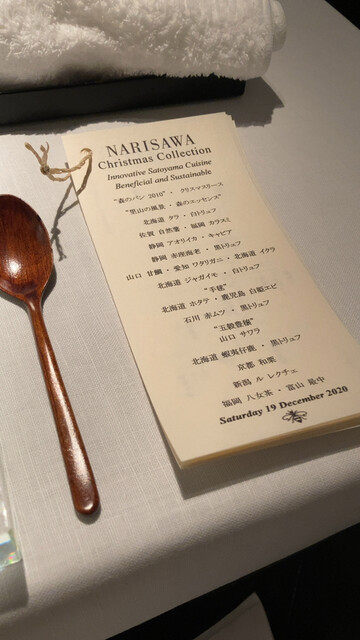 NARISAWA
Christmas Collection
Innovative Satoyama Cuisine
Beneficial and Sustainable
"森のパン 2010"・ クリスマスリース
"里山の風景・森のエッセンス"
北海道 タラ・白トリュフ
佐賀 自然薯・福岡 カラスミ
静岡 アオリイカ・キャビア
静岡 赤座海老・黒トリュフ
山口 甘鯛・愛知 ワタリガニ・北海道 イクラ
北海道 ジャガイモ・白トリュフ
"手毬"
北海道 ホタテ・鹿児島 白姫エビ
石川 赤ムツ・黒トリュフ
"五穀豊穣"
山口 サワラ
北海道 蝦夷仔鹿・黒トリュフ
京都 和栗
新潟 ル レクチェ
福岡 八女茶・富山 最中
Saturday 19 December 2020